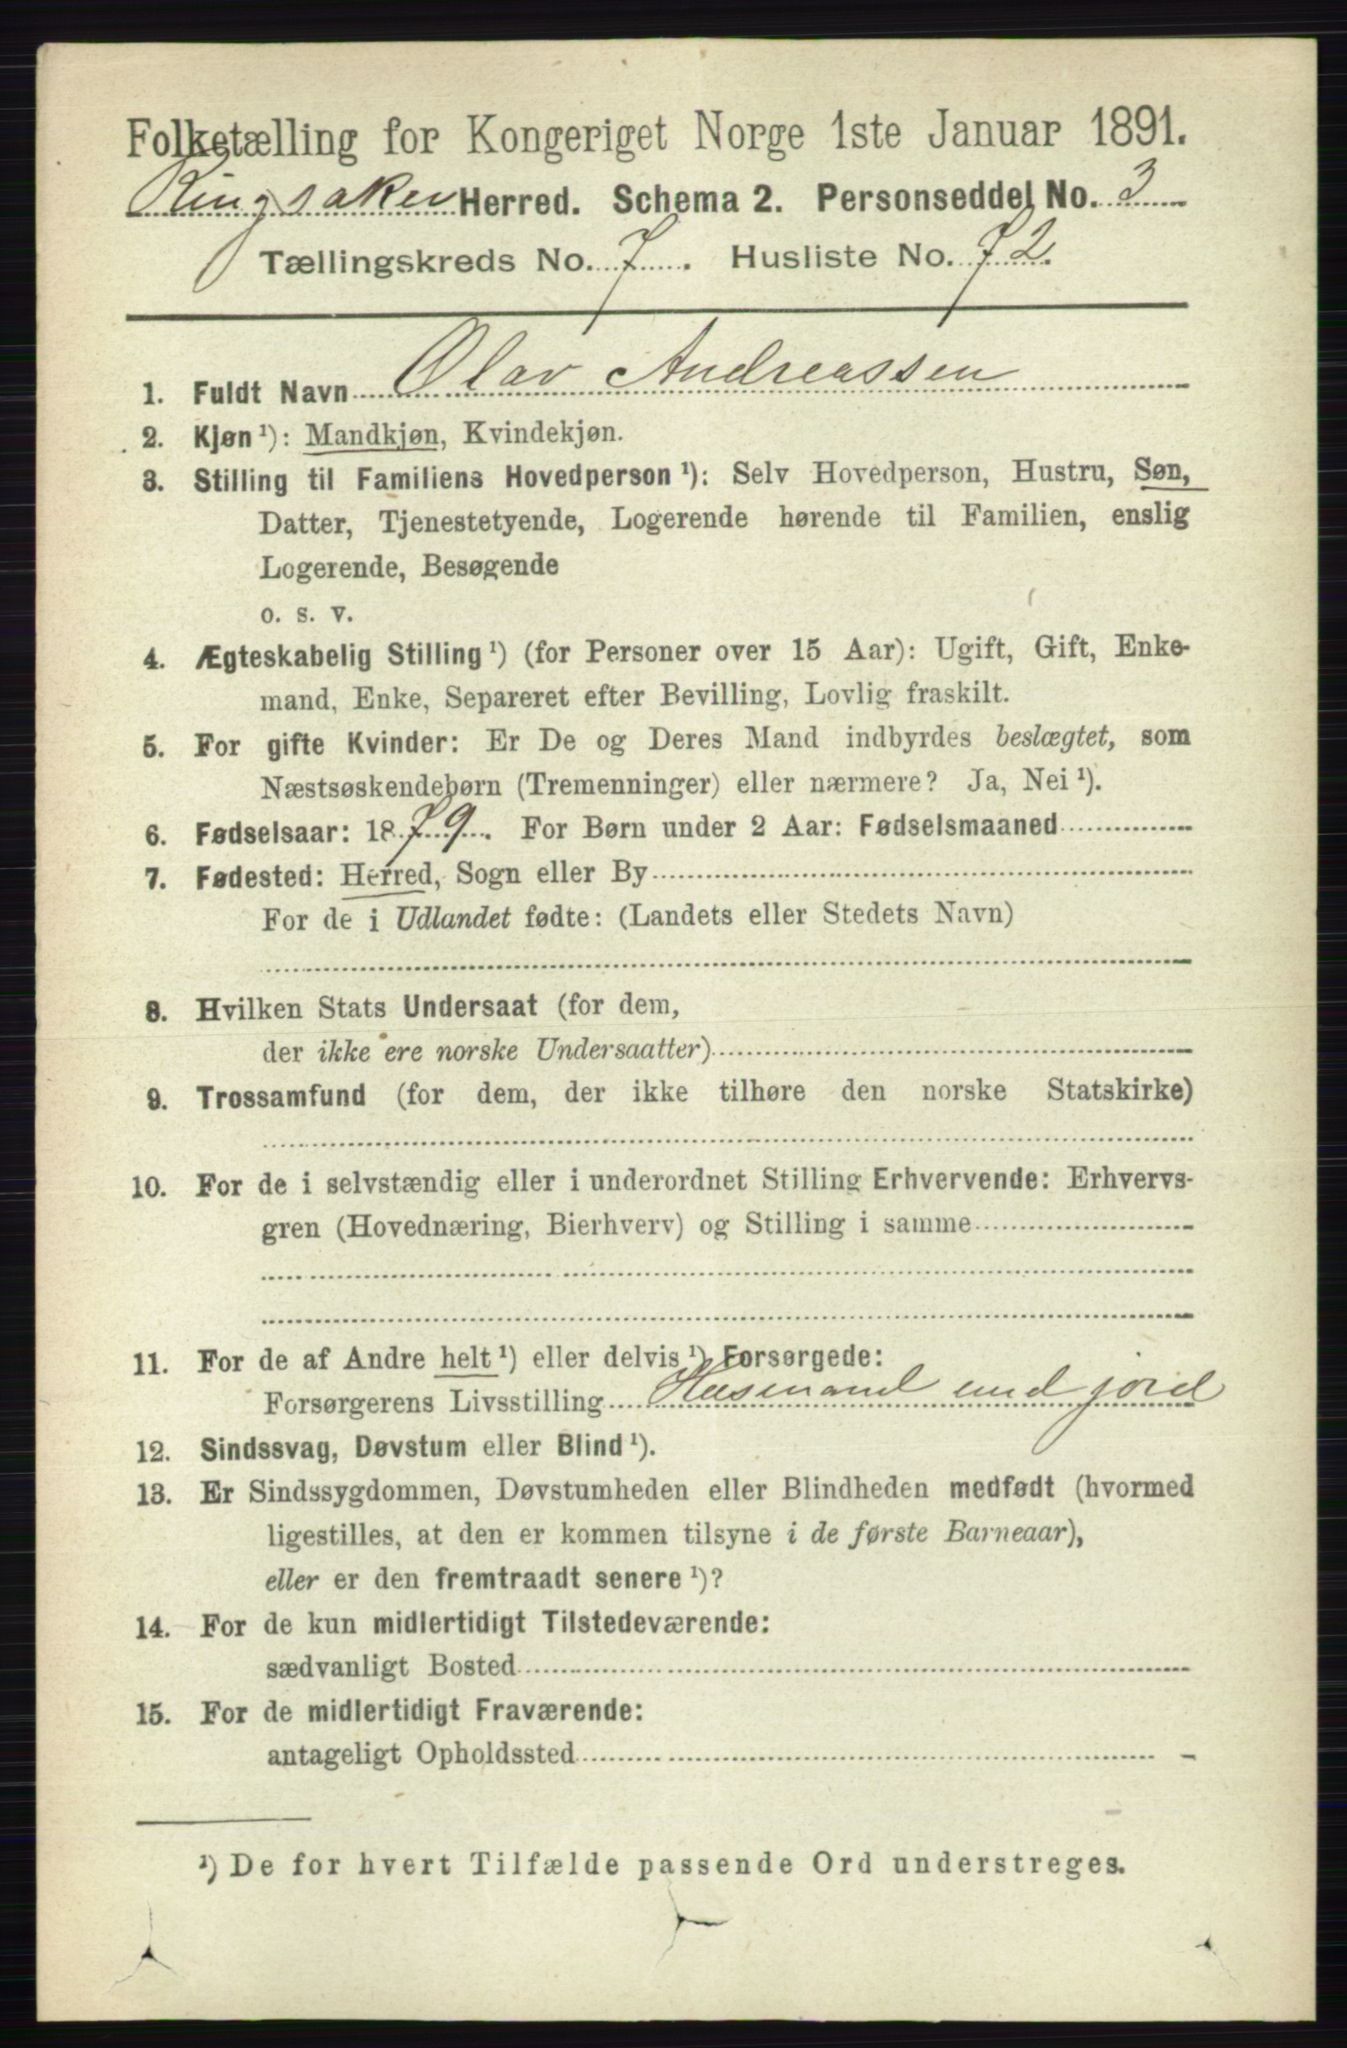 Folketælling for Kongeriget Norge 1ste Januar 1891.
Ringsaker Herred. Schema 2. Personseddel No. 3
Tællingskreds No. 7. Husliste No. 72.
1. Fuldt Navn Olav Andreassen
2. Kjøn¹): Mandkjøn, Kvindekjøn.
3. Stilling til Familiens Hovedperson¹): Selv Hovedperson, Hustru, Søn,
Datter, Tjenestetyende, Logerende hørende til Familien, enslig
Logerende, Besøgende
o. s. v.
4. Ægteskabelig Stilling¹) (for Personer over 15 Aar): Ugift, Gift, Enke-
mand, Enke, Separeret efter Bevilling, Lovlig fraskilt.
5. For gifte Kvinder: Er De og Deres Mand indbyrdes beslægtet, som
Næstsøskendebørn (Tremenninger) eller nærmere? Ja, Nei¹).
6. Fødselsaar: 1879. For Børn under 2 Aar: Fødselsmaaned
7. Fødested: Herred, Sogn eller By
For de i Udlandet fødte: (Landets eller Stedets Navn)
8. Hvilken Stats Undersaat (for dem,
der ikke ere norske Undersaatter)
9. Trossamfund (for dem, der ikke tilhøre den norske Statskirke)
10. For de i selvstændig eller i underordnet Stilling Erhvervende: Erhvervs-
gren (Hovednæring, Bierhverv) og Stilling i samme
11. For de af Andre helt¹) eller delvis¹) Forsørgede:
Forsørgerens Livsstilling Husmand med jord
12. Sindssvag, Døvstum eller Blind¹).
13. Er Sindssygdommen, Døvstumheden eller Blindheden medfødt (hvormed
ligestilles, at den er kommen tilsyne i de første Barneaar),
eller er den fremtraadt senere¹)?
14. For de kun midlertidigt Tilstedeværende:
sædvanligt Bosted
15. For de midlertidigt Fraværende:
antageligt Opholdssted
¹) De for hvert Tilfælde passende Ord understreges.